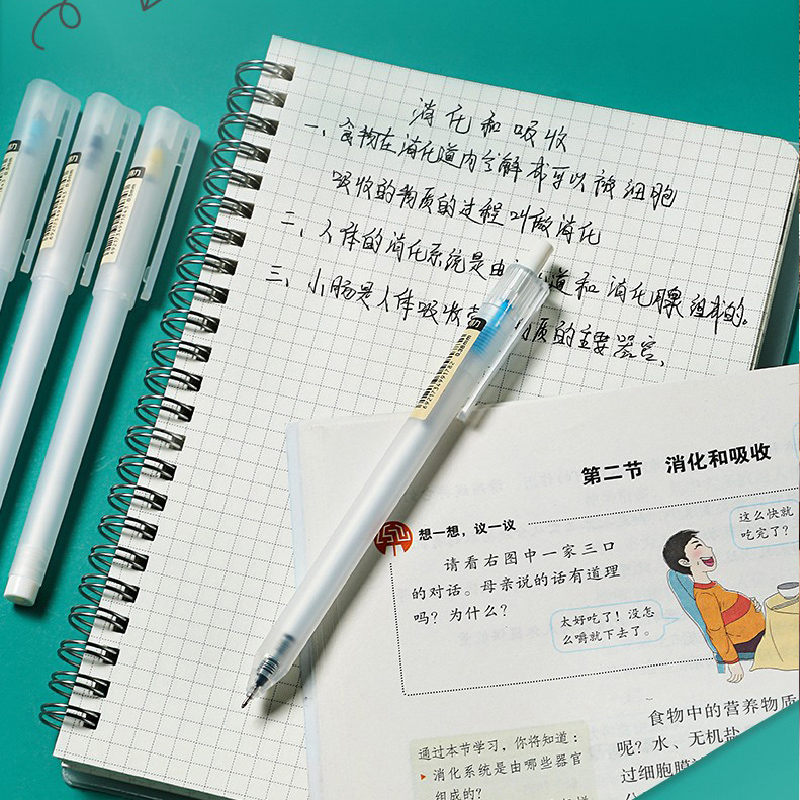 消化和吸收
一、食物在消化道内分解成可以被细胞
吸收的物质的过程叫做消化
二、人体的消化系统是由道和消化腺组成的。
三、小肠是人体吸收营物质的主要器官、
第二节 消化和吸收
想一想，议一议
请看右图中一家三口
的对话。母亲说的话有道理
吗？为什么？
这么快就
吃完了？
太好吃了！没怎
么嚼就下去了。
食物中的营养物质
呢？水、无机盐
过细胞膜
通过本节学习，你将知道：
▸ 消化系统是由哪些器官
组成的？